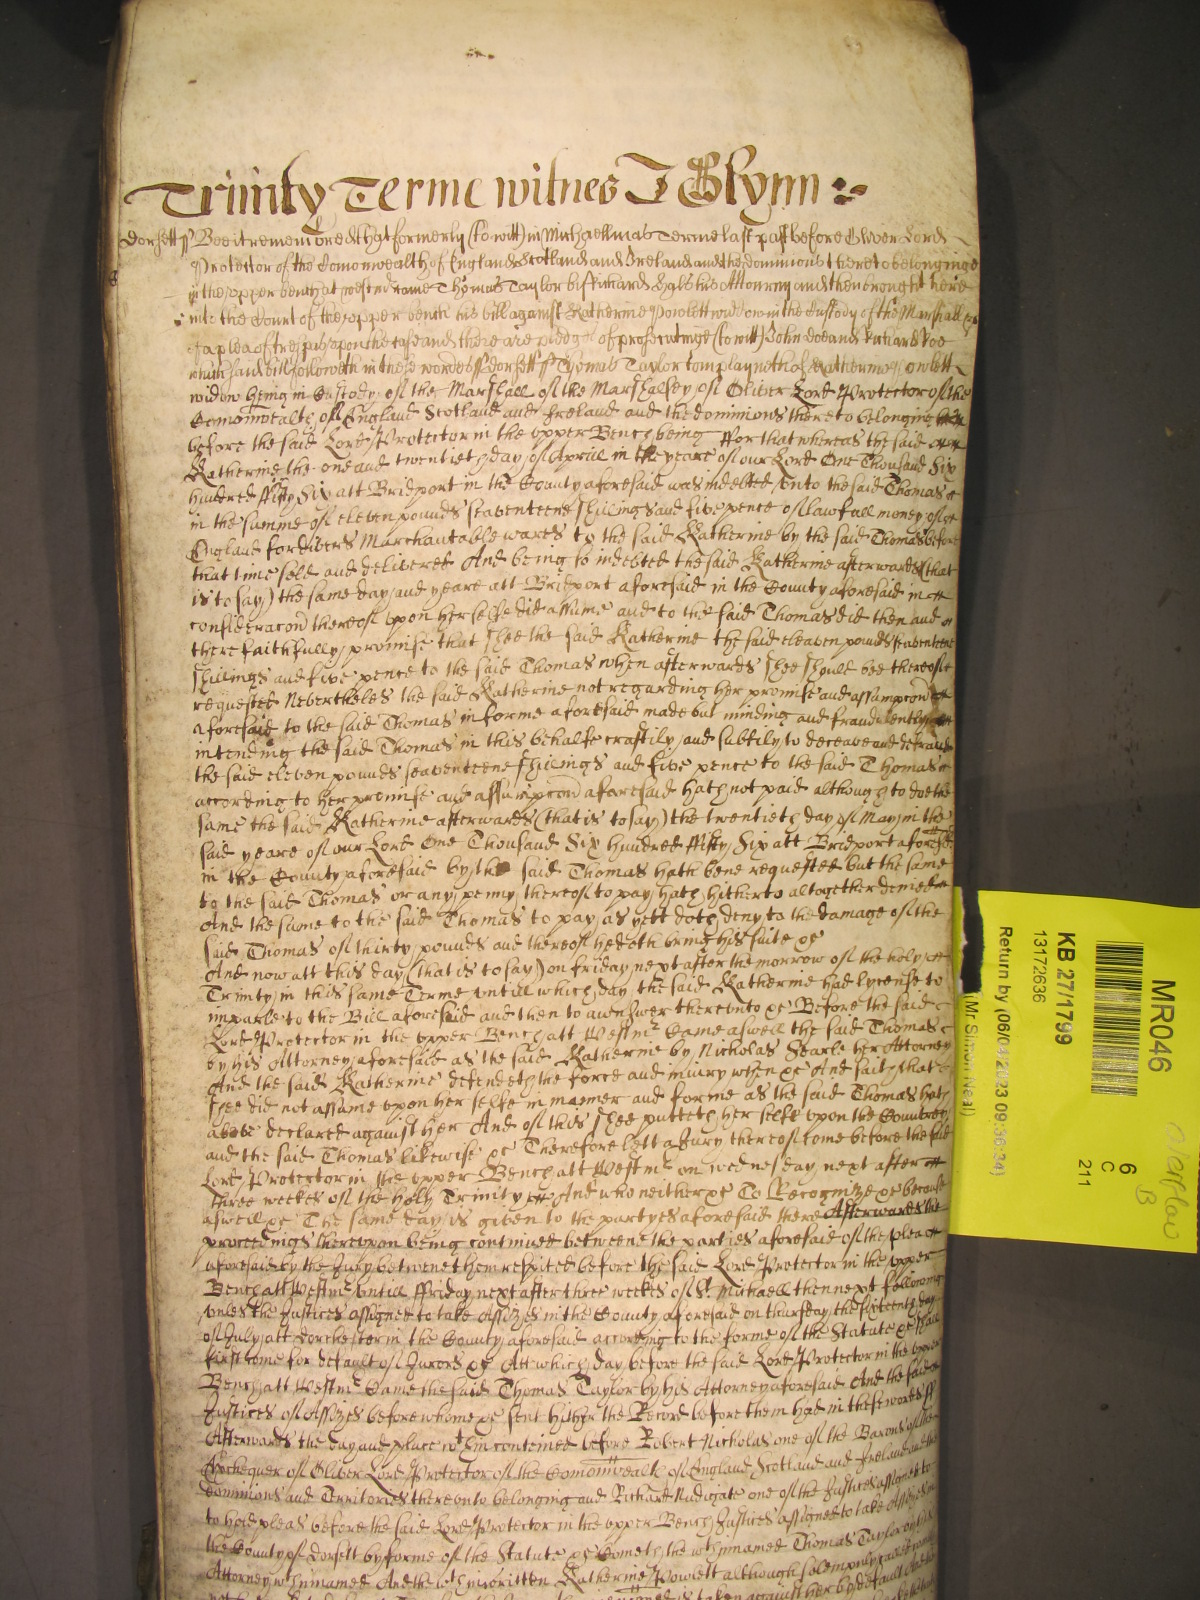 Trinity Terme witnes J Glynn
Dorsett ss Bee it remembred that formerly (to witt) in Michaellmas Terme last past before Oliver Lord
Protector of the Comonwealth of England Scotland and Ireland and the dominions thereto belonginge
in the upper bench at Thomas Taylor by Richard his Attourny and then brought here
into the Court of the upper bench his bill against Katherine Powlett widdow in the Custody of the Marshall &c
of a plea of trespas upon the case and there are pledges of prosecutinge (to witt) John doe and Richard Roe
which said bill followeth in these wordes ss Dorsett ss Thomas Taylor complayneth of Katherine Powlett
widow being in Custody of the Marshall of the Marshalsey of Oliver Lord Protector of the
Comonwealth of England Scotland and Ireland and the dominions thereto belonging
before the said Lord Protector in the upper Bench being ffor that whereas the said
Katherine the one and twentieth day of Aprill in the yeare of our Lord One Thousand Six
hundred ffifty Six att Bridport in the County aforesaid was indebted unto the said Thomas
in the summe of eleven pounds seaventeene shillings and five pence of lawfull money of
England for divers Marchantable wares to the said Katherine by the said Thomas before
that time sold and delivered And being so indebted the said Katherine afterwards (that
is to say) the same day and yeare att Bridport aforesaid in the County aforesaid in
consideracon thereof upon her selfe did assume and to the said Thomas did then and
there faithfully promise that shee the said Katherine the said eleaven pounds seaventeene
shillings and five pence to the said Thomas when afterwards shee should bee thereof
requested Neverthelesse the said Katherine not regarding her promise and assumpcon
aforesaid to the said Thomas in forme aforesaid made but minding and fraudulently
intending the said Thomas in this behalfe craftily and subtily to deceave and defraude
the said eleven pounds seaventeene shillings and five pence to the said Thomas
according to her promise and assumpcon aforesaid hath not paid although to doe the
same the said Katherine afterwards (that is to say) the twentieth day of May in the
said yeare of our Lord One Thousand Six Hundred ffifty Six att Bridport aforesaid
in the County aforesaid by the said Thomas hath bene requested but the same
to the said Thomas or any penny thereof to pay hath hitherto altogether denied
And the same to the said Thomas to pay as yett doth deny to the damage of the
said Thomas of thirty pounds and thereof hee doth bring his suite &c
And now att this day (that is to say) on friday next after the morrow of the holy
Trinity in this same Terme untill which day the said Katherine had lycense to
imparle to the Bill aforesaid and then to answer thereunto &c Before the said
Lord Protector in the upper Bench att Westmr Came aswell the said Thomas
by his Attorney aforesaid as the said Katherine by Nicholas Searle her Attorney
And the said Katherine defendeth the force and iniury when &c And saith that
shee did not assume upon her selfe in manner and forme as the said Thomas hath
above declared against her And of this shee putteth her selfe upon the Countrey
and the said Thomas likewise &c Therefore lett a Jury thereof come before the said
Lord Protector in the upper Bench att Westmr on wednesday next after
three weekes of the Holy Trinity And who neither &c To Recognize &c because
aswell &c The same day is given to the partyes aforesaid there Afterwards the
proceedings thereupon being continued betweene the parties aforesaid of the plea
aforesaid by the Jury betweene them respited before the said Lord Protector in the upper
Bench att Westmr untill Friday next after three weekes of St. Michaell then next following
unles the Justices assigned to take Assizes in the County aforesaid on thursday the sixteenth day
of July att Dorchester in the County aforesaid according to the forme of the Statute &c shall
first come for default of Jurors &c Att which day before the said Lord Protector in the upper
Bench att Westmr Came the said Thomas Taylor by his Attorney aforesaid And the said
Justices of Assizes before whome &c sent hither the Record before them had in these words ss
Afterwards the day and place within conteined before Robert Nicholas one of the Barons of the
Exchequer of Oliver Lord Protector of the Comonwealth of England Scotland and Ireland and the
dominions and Territories thereunto belonging and Richard Nudigate one of the Justices assigned to
to hold pleas before the said Lord Protector in the upper Bench Justices assigned to take Assizes in
the County of Dorsett by forme of the Statute &c Cometh the within named Thomas Taylor by his
Attorney within named And the within written Katherine Powlett although solemnly called
is taken against her by default
MR046
KB 27/1799
13172636
Return by (06/04/2023 09:36:34)
(Mr Simon Neal)
6
C
211
B